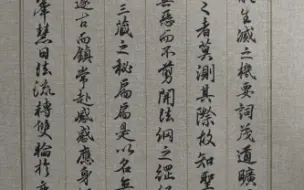 生滅之機要詞茂道曠
之者莫測其際故知聖
惡而不剪開法網之綱
三藏之秘扃扃是以名無
遂古而鎮常赴感感應身
峯慧日法流轉雙輪於